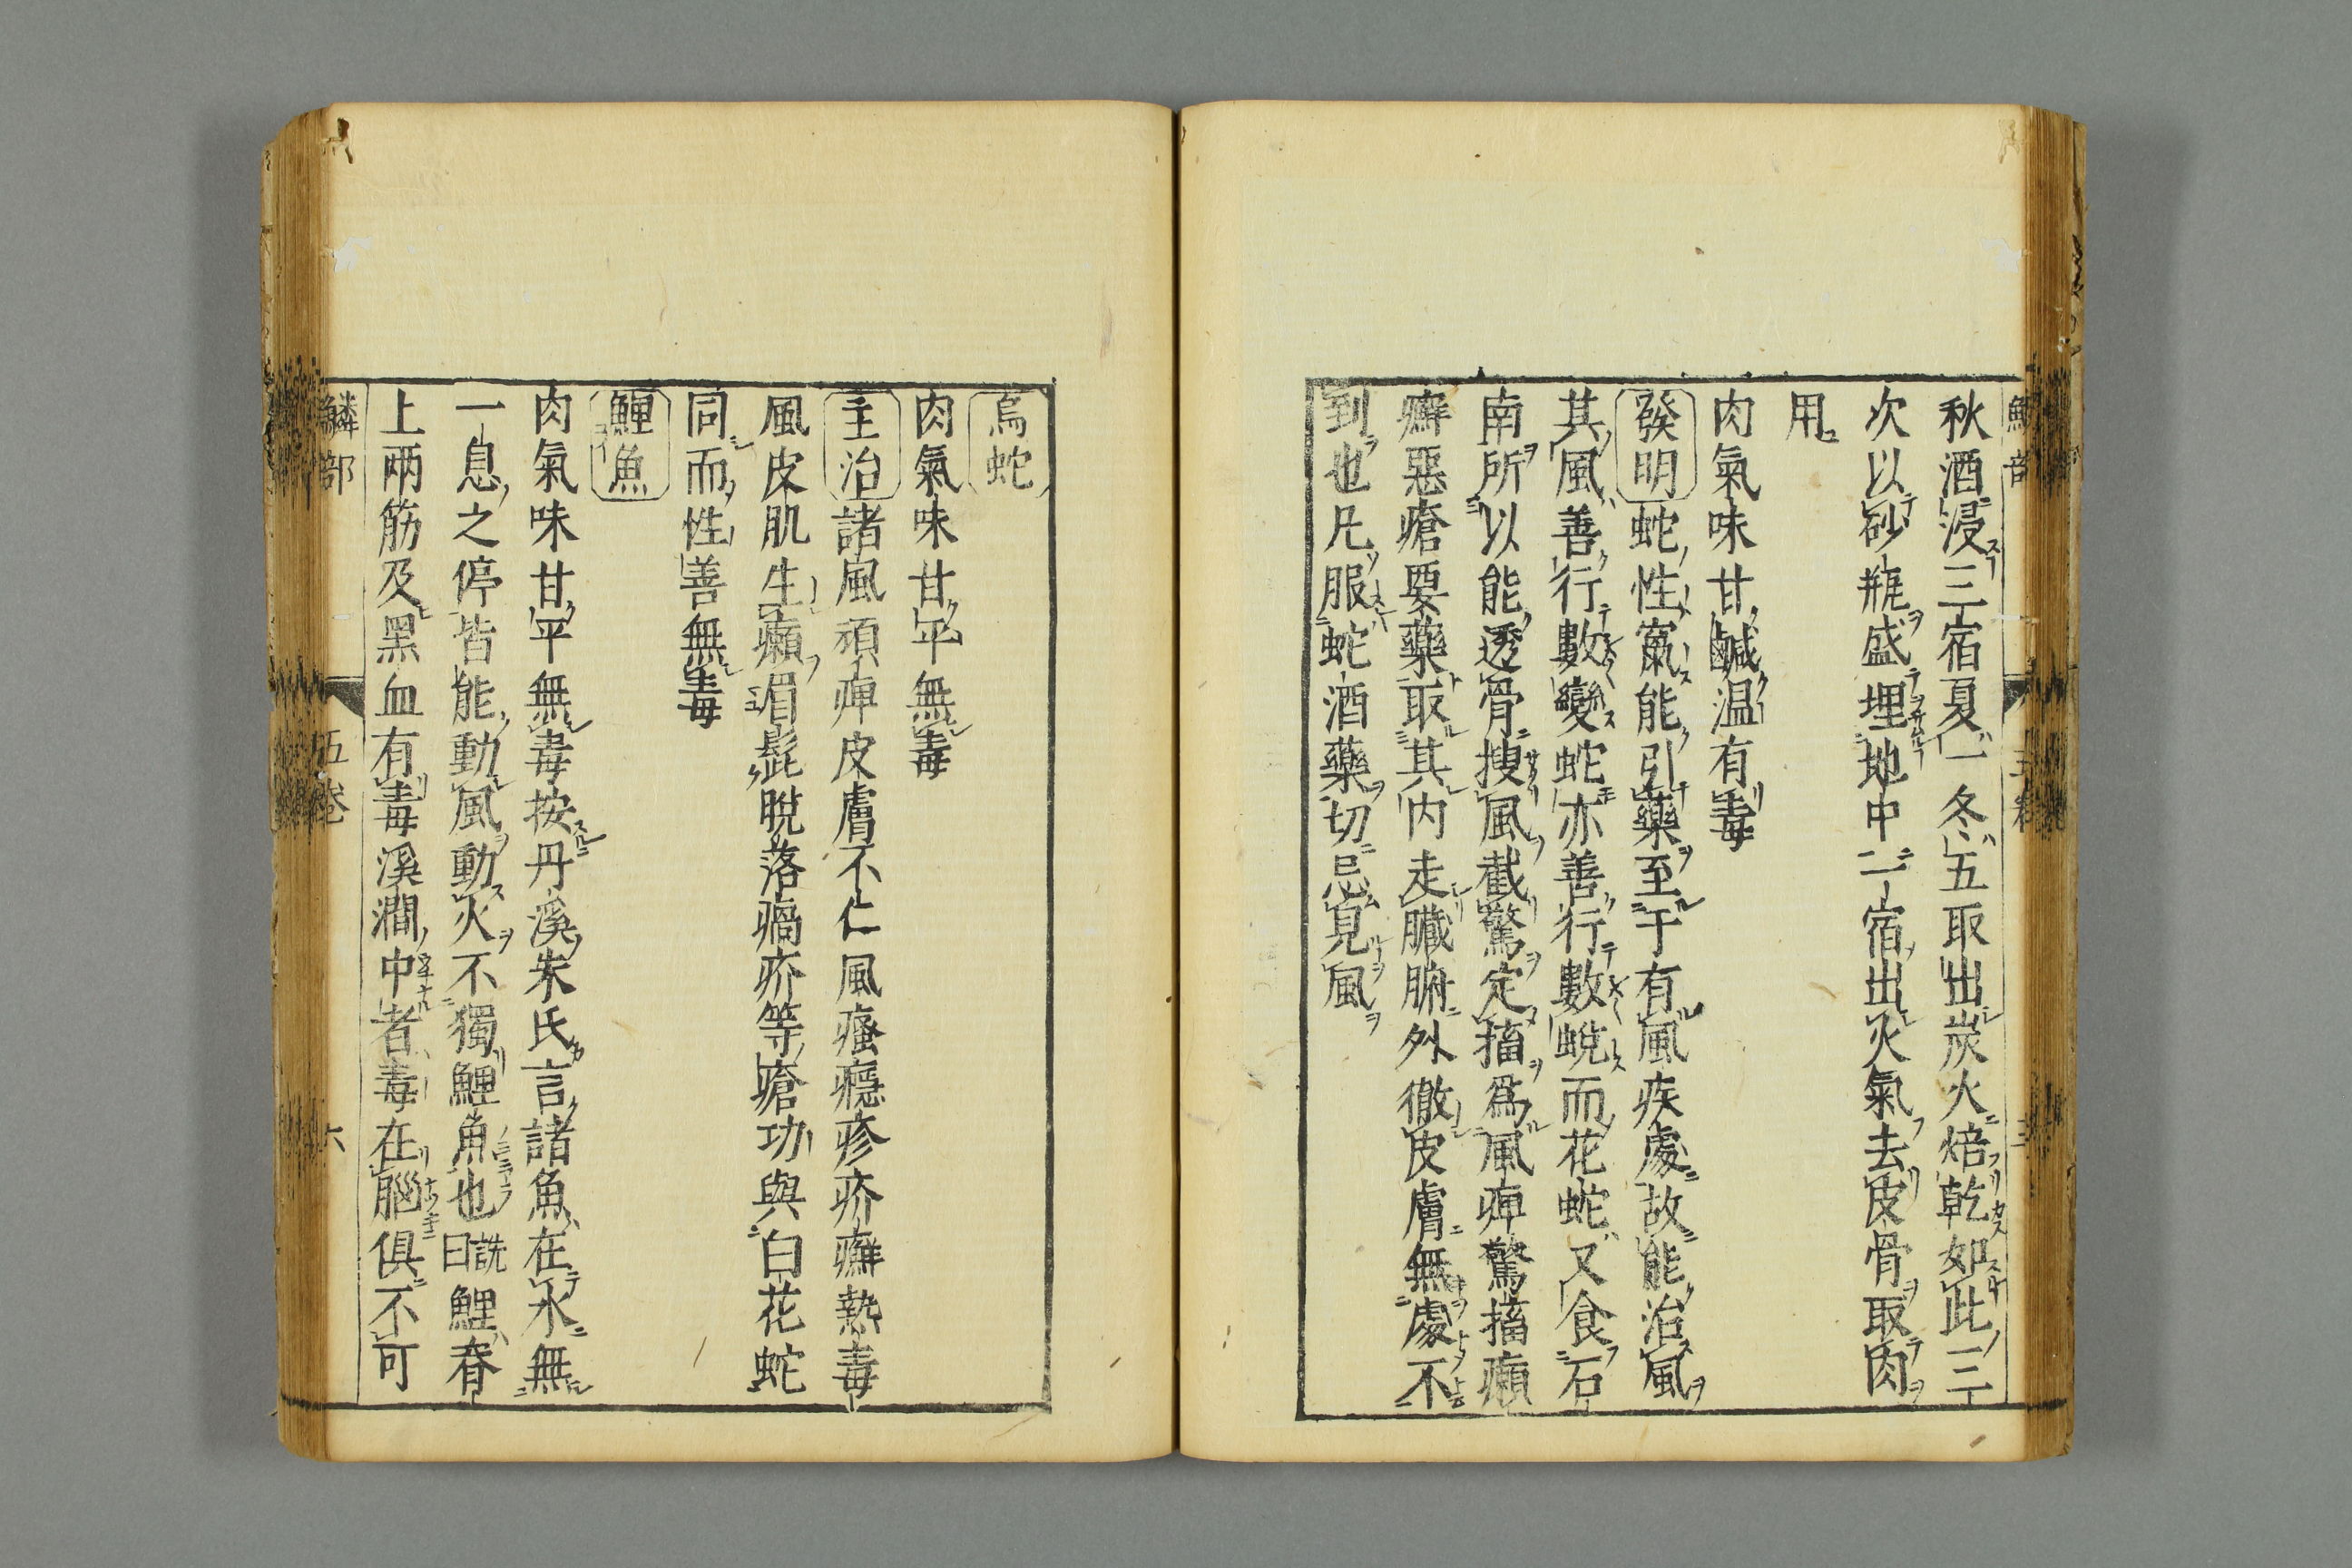 秋酒浸三宿夏一冬五取出炭火焙乾如此三
次以砂瓶盛埋地中一宿出火氣去皮骨取肉
用
肉氣味甘鹹温有毒
發明 蛇性竄能引藥至于有風疾處故能治風
其風善行數變蛇亦善行數蛻而花蛇又食石
南所以能透骨搜風截驚定搐爲風痺驚搐癩
癬惡瘡要藥取其内走臟腑外徹皮膚無處不
到也凡服蛇酒藥切忌見風
烏蛇
肉氣味甘平無毒
主治 諸風頑痺皮膚不仁風瘙癮疹疥癬熱毒
風皮肌生癩眉髭脫落㾴疥等瘡功與白花蛇
同而性善無毒
鯉魚
肉氣味甘平無毒按丹溪朱氏言諸魚在水無
一息之停皆能動風動火不獨鯉魚也詵曰鯉脊
上兩筋及黑血有毒溪澗中者毒在腦俱不可
鱗部 五卷 六